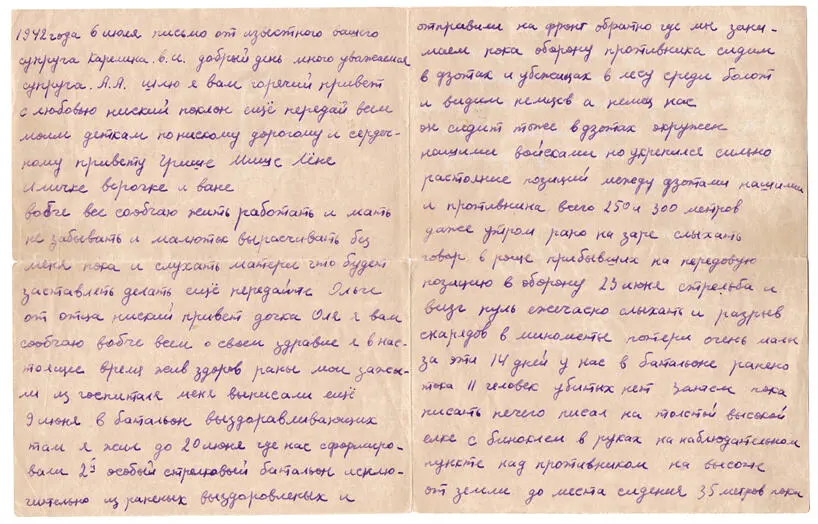 1942 года 6 июля письмо от известного вашего
супруга Карпина. в.и. добрый день много уважаемая
супруга. А.А. шлю я вам горячий привет
с любовью ниский поклон ещё передай всем
моим деткам по нискому дорогому и сердеч-
ному привету Грише Мише Лёне
Лличке верочке и ване
вобче все сообчаю жить работать и мать
не забывать и малюток вырасчивать без
меня пока и слухать матери что будет
заставлеть делать ещё передайте Ольге
от отца ниский привет дочка Оля я вам
сообчаю вобче всем о своем здравие я в нас-
тоящие время жив здоров раны мои зажы-
ли из госпиталя меня выписали ещё
9 июня в батальон выздоравливающих
там я жил до 20 июня где нас сформиро-
вали 2й особый стрелковый батальон исклю-
чительно из раненых выздоровленых и
отправили на фронт обратно где мы зани-
маем пока оборону противника сидим
в дзотах и убежищах в лесу среди болот
и видим немцев а немец нас
он сидит тоже в дзотах окружен
нашими войсками но укрепился сильно
растояние позиций между дзотами нашими
и противника всего 250 и 300 метров
даже утром рано на заре слыхать
говор в роще прибывших на передовую
позицию в оборону 23 июня стрельба и
визг пуль ежечасно слыхать и разрыв
скарядов в минометы потери очень малы
за эти 14 дней у нас в батальоне ранено
тока 11 человек убитых нет Затем пока
писать нечего писал на толстой высокой
елке с биноклем в руках на наблюдательном
пункте над противником на высоте
от земли до места сидения 35 метров пока